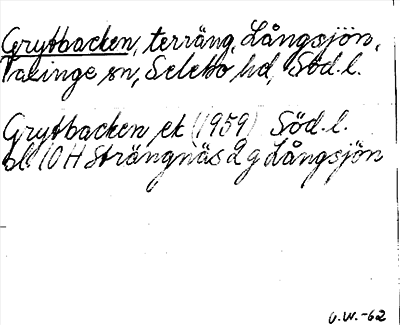 Grytbacken, terräng, Långsjön,
Taxinge sn, Selebo hd, Söd. l.
Grytbacken ek (1959) Söd. l.
bl. 10 H Strängnäs 2 g Långsjön
O.W.-62